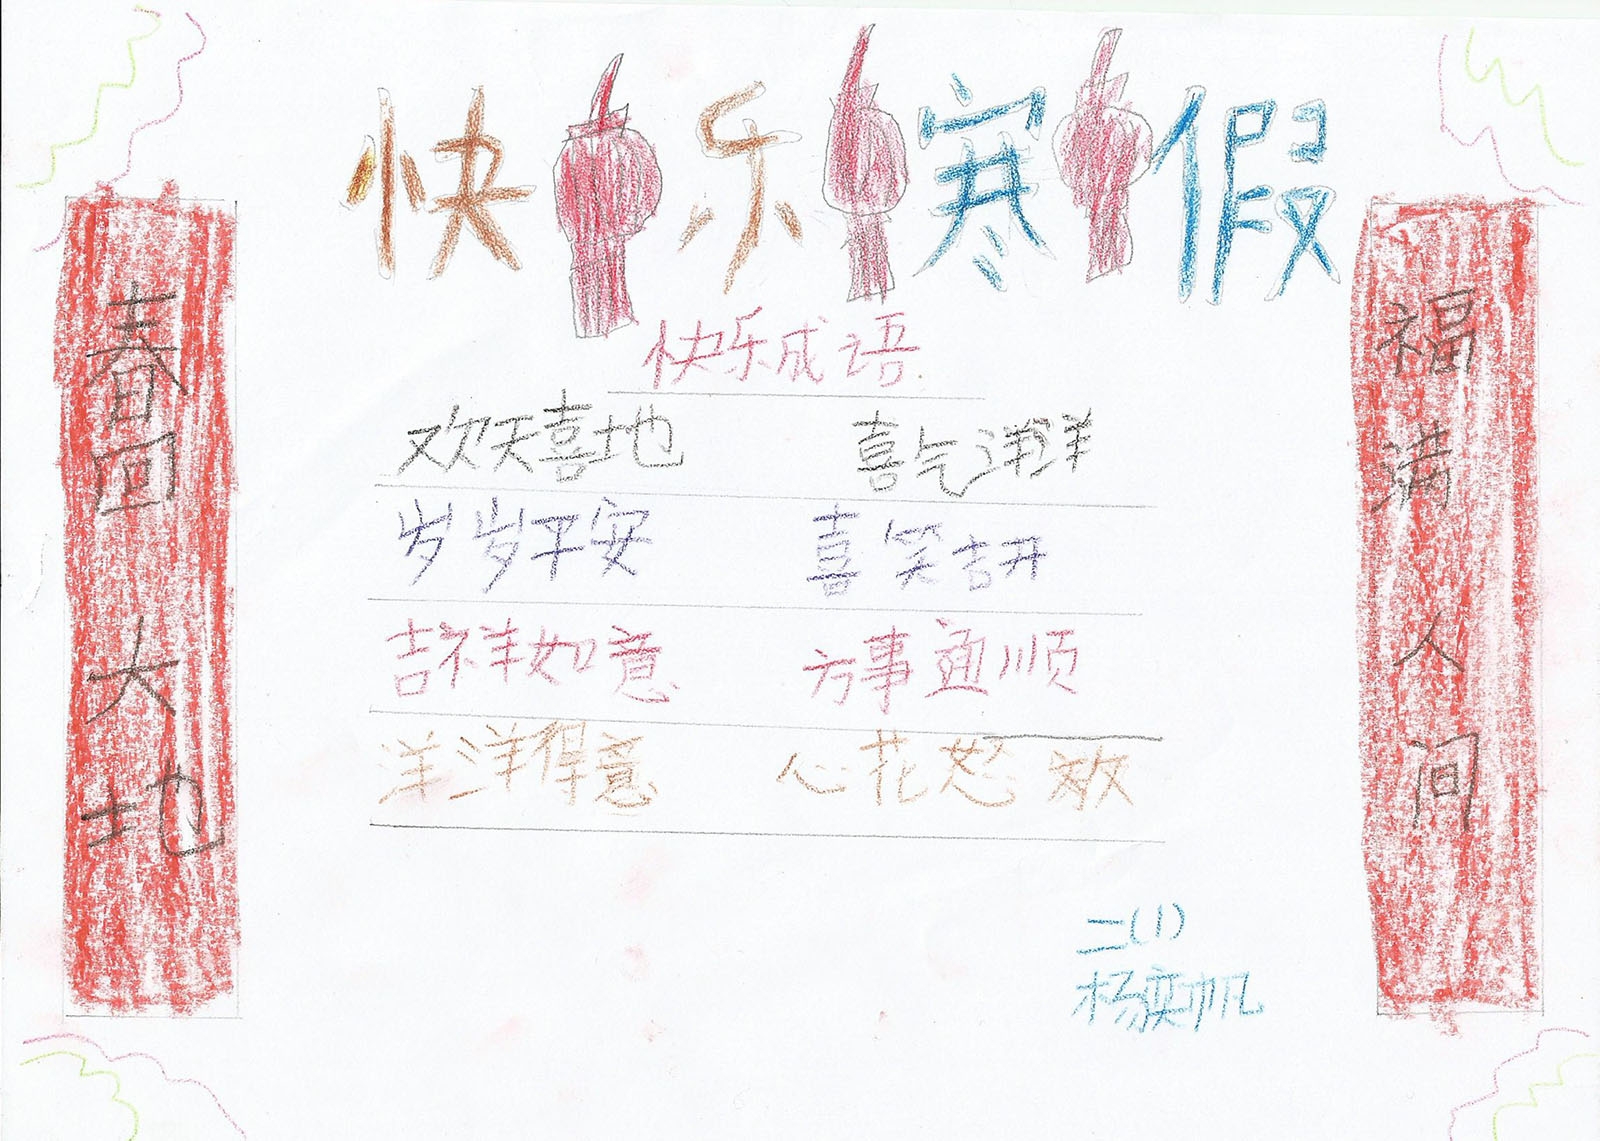 快乐寒假
春回大地
快乐成语
欢天喜地 喜气洋洋
岁岁平安 喜笑吉开
吉祥如意 方事通顺
洋洋得意 心花怒放
福满人间
二(1)
杨奕帆